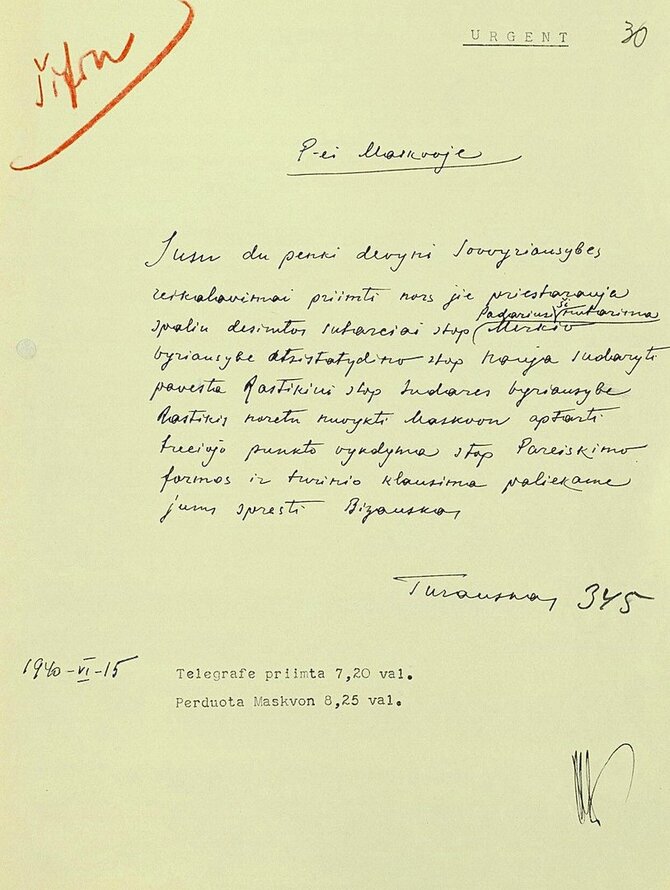 URGENT
30
Šifru
P-ei Maskvoje
Jusu du penki devyni Sovvyriausybes
reikalavimai priimti nors jie priestarauja
Padarius ši nutarima
spaliu desimtos sutarciai stop Merkio
vyriausybe atsistatydino stop nauja sudaryti
pavesta Rastikiui stop Sudares vyriausybe
Rastikis noretu nuvykti Maskvon aptarti
treciojo punkto vykdyma stop Pareiskimo
formos ir turinio klausima paliekame
jums spresti Bizauskas
Turauskas 345
1940-VI-15
Telegrafe priimta 7,20 val.
Perduota Maskvon 8,25 val.